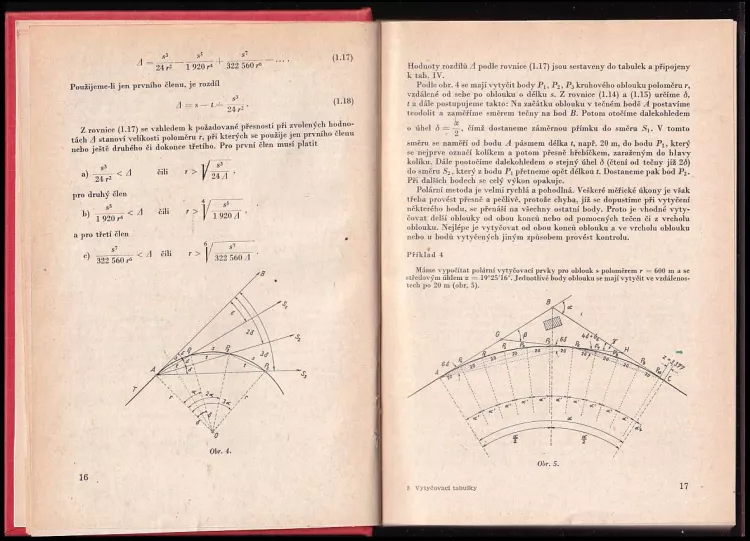 Δ = s³/24 r² − s⁵/1 920 r⁴ + s⁷/322 560 r⁶ − .... (1.17)
Použijeme-li jen prvního členu, je rozdíl
Δ = s − t ≐ s³/24 r² . (1.18)
Z rovnice (1.17) se vzhledem k požadované přesnosti při zvolených hodno-
tách Δ stanoví velikosti poloměru r, při kterých se použije jen prvního členu
nebo ještě druhého či dokonce třetího. Pro první člen musí platit
a) s³/24 r² < Δ čili r > √(s³/24 Δ) .
pro druhý člen
b) s⁵/1 920 r⁴ < Δ čili r > ⁴√(s⁵/1 920 Δ) .
a pro třetí člen
c) s⁷/322 560 r⁶ < Δ čili r > ⁶√(s⁷/322 560 Δ) .
B
S₁
S₂
S₃
2δ
3δ
A
T
O
Obr. 4.
16
Hodnoty rozdílů Δ podle rovnice (1.17) jsou sestaveny do tabulek a připojeny
k tab. IV.
Podle obr. 4 se mají vytyčit body P₁, P₂, P₃ kruhového oblouku poloměru r,
vzdálené od sebe po oblouku o délku s. Z rovnice (1.14) a (1.15) určíme δ,
t a dále postupujeme takto: Na začátku oblouku v tečném bodě A postavíme
teodolit a zaměříme směrem tečny na bod B. Potom otočíme dalekohledem
o úhel δ = α/2, čímž dostaneme záměrnou přímku do směru S₁. V tomto
směru se naměří od bodu A pásmem délka t, např. 20 m, do bodu P₁, který
se nejprve označí kolíkem a potom přesně hřebíčkem, zaraženým do hlavy
kolíku. Dále pootočíme dalekohledem o stejný úhel δ (čtení od tečny již 2δ)
do směru S₂, který z bodu P₁ přetneme opět délkou t. Dostaneme pak bod P₂.
Při dalších bodech se celý výkon opakuje.
Polární metoda je velmi rychlá a pohodlná. Veškeré měřické úkony je však
třeba provést přesně a pečlivě, protože chyba, jíž se dopustíme při vytyčení
některého bodu, se přenáší na všechny ostatní body. Proto je vhodné vyty-
čovat delší oblouky od obou konců nebo od pomocných tečen či z vrcholu
oblouku. Nejlépe je vytyčovat od obou konců oblouku a ve vrcholu oblouku
nebo u bodů vytyčených jiným způsobem provést kontrolu.
Příklad 4
Máme vypočítat polární vytyčovací prvky pro oblouk s poloměrem r = 600 m a se
středovým úhlem α = 19°25′16″. Jednotlivé body oblouku se mají vytyčit ve vzdálenos-
tech po 20 m (obr. 5).
B
α
G
β
H
A
C
6δ
α
α/2
α/2
Obr. 5.
2 Vytyčovací tabulky
17